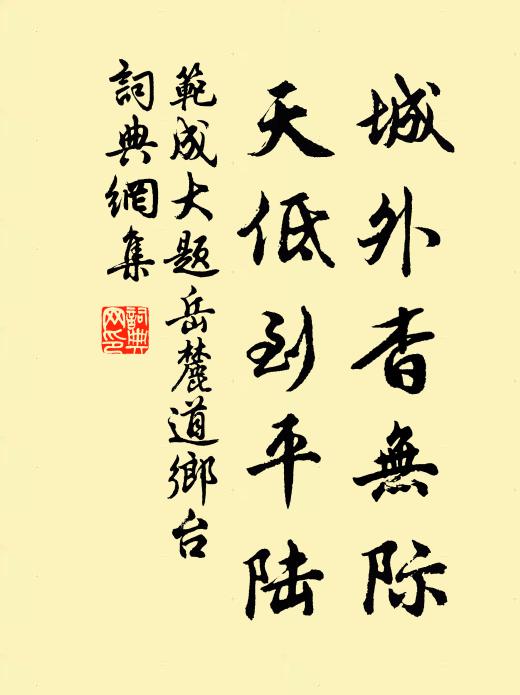 城外杳無际
天低到平陆
範成大题岳麓道鄉台
詞典網集
詞典网印